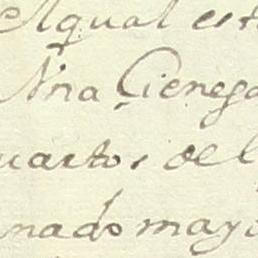 el qual est
Nra Cienega
uartos del
nado mayo